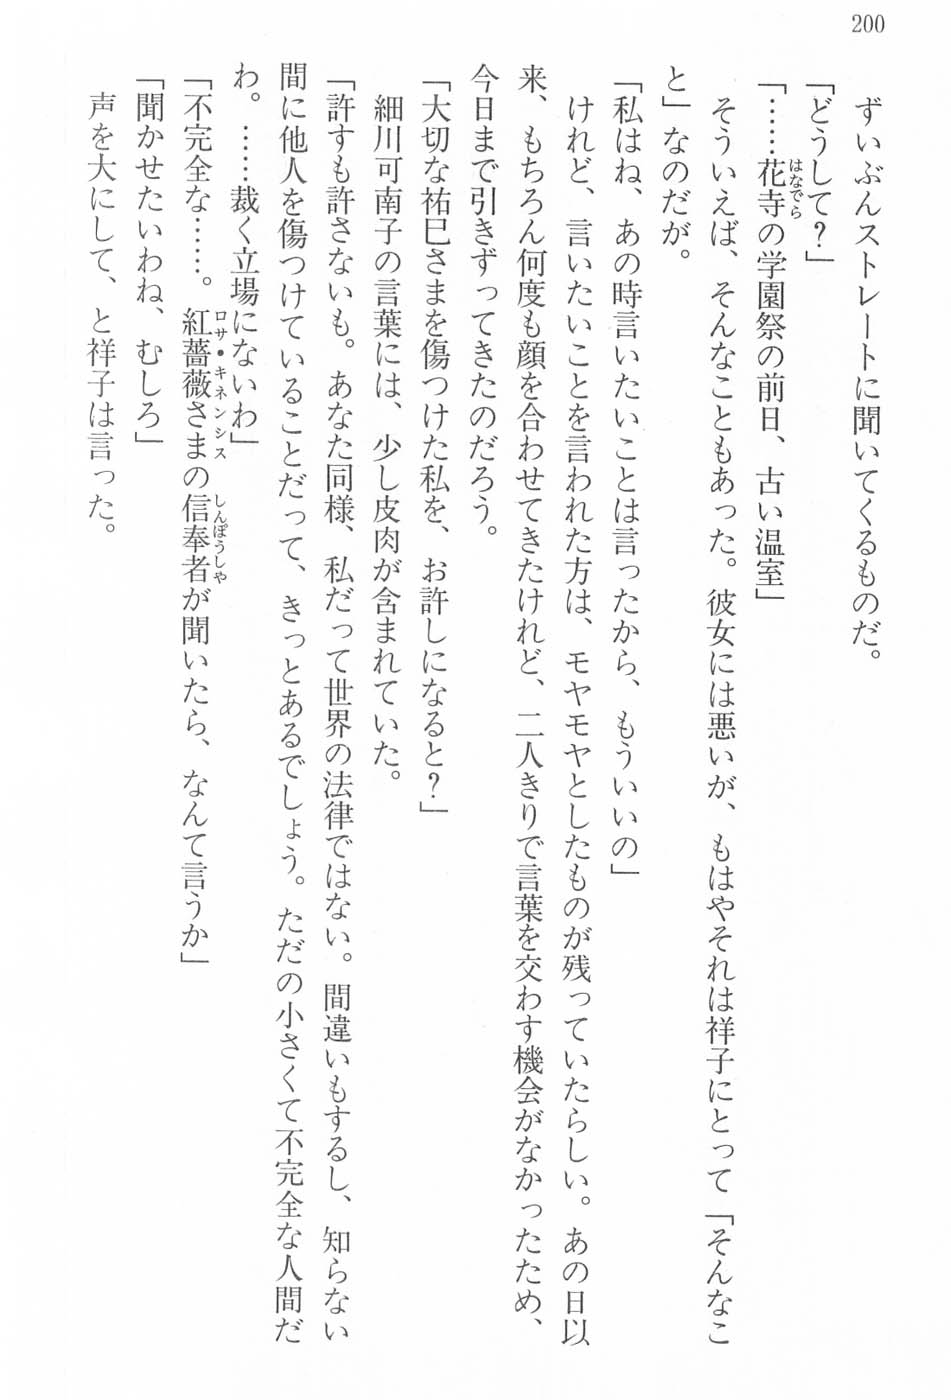 200
ずいぶんストレートに聞いてくるものだ。
「どうして？」
「……花寺の学園祭の前日、古い温室」
はなでら
そういえば、そんなこともあった。彼女には悪いが、もはやそれは祥子にとって「そんなこ
と」なのだが。
「私はね、あの時言いたいことは言ったから、もういいの」
けれど、言いたいことを言われた方は、モヤモヤとしたものが残っていたらしい。あの日以
来、もちろん何度も顔を合わせてきたけれど、二人きりで言葉を交わす機会がなかったため、
今日まで引きずってきたのだろう。
「大切な祐巳さまを傷つけた私を、お許しになると？」
細川可南子の言葉には、少し皮肉が含まれていた。
「許すも許さないも。あなた同様、私だって世界の法律ではない。間違いもするし、知らない
間に他人を傷つけていることだって、きっとあるでしょう。ただの小さくて不完全な人間だ
わ。……裁く立場にないわ」
「不完全な……。紅薔薇さまの信奉者が聞いたら、なんて言うか」
ロサ・キネンシス
しんぽうしゃ
「聞かせたいわね、むしろ」
声を大にして、と祥子は言った。